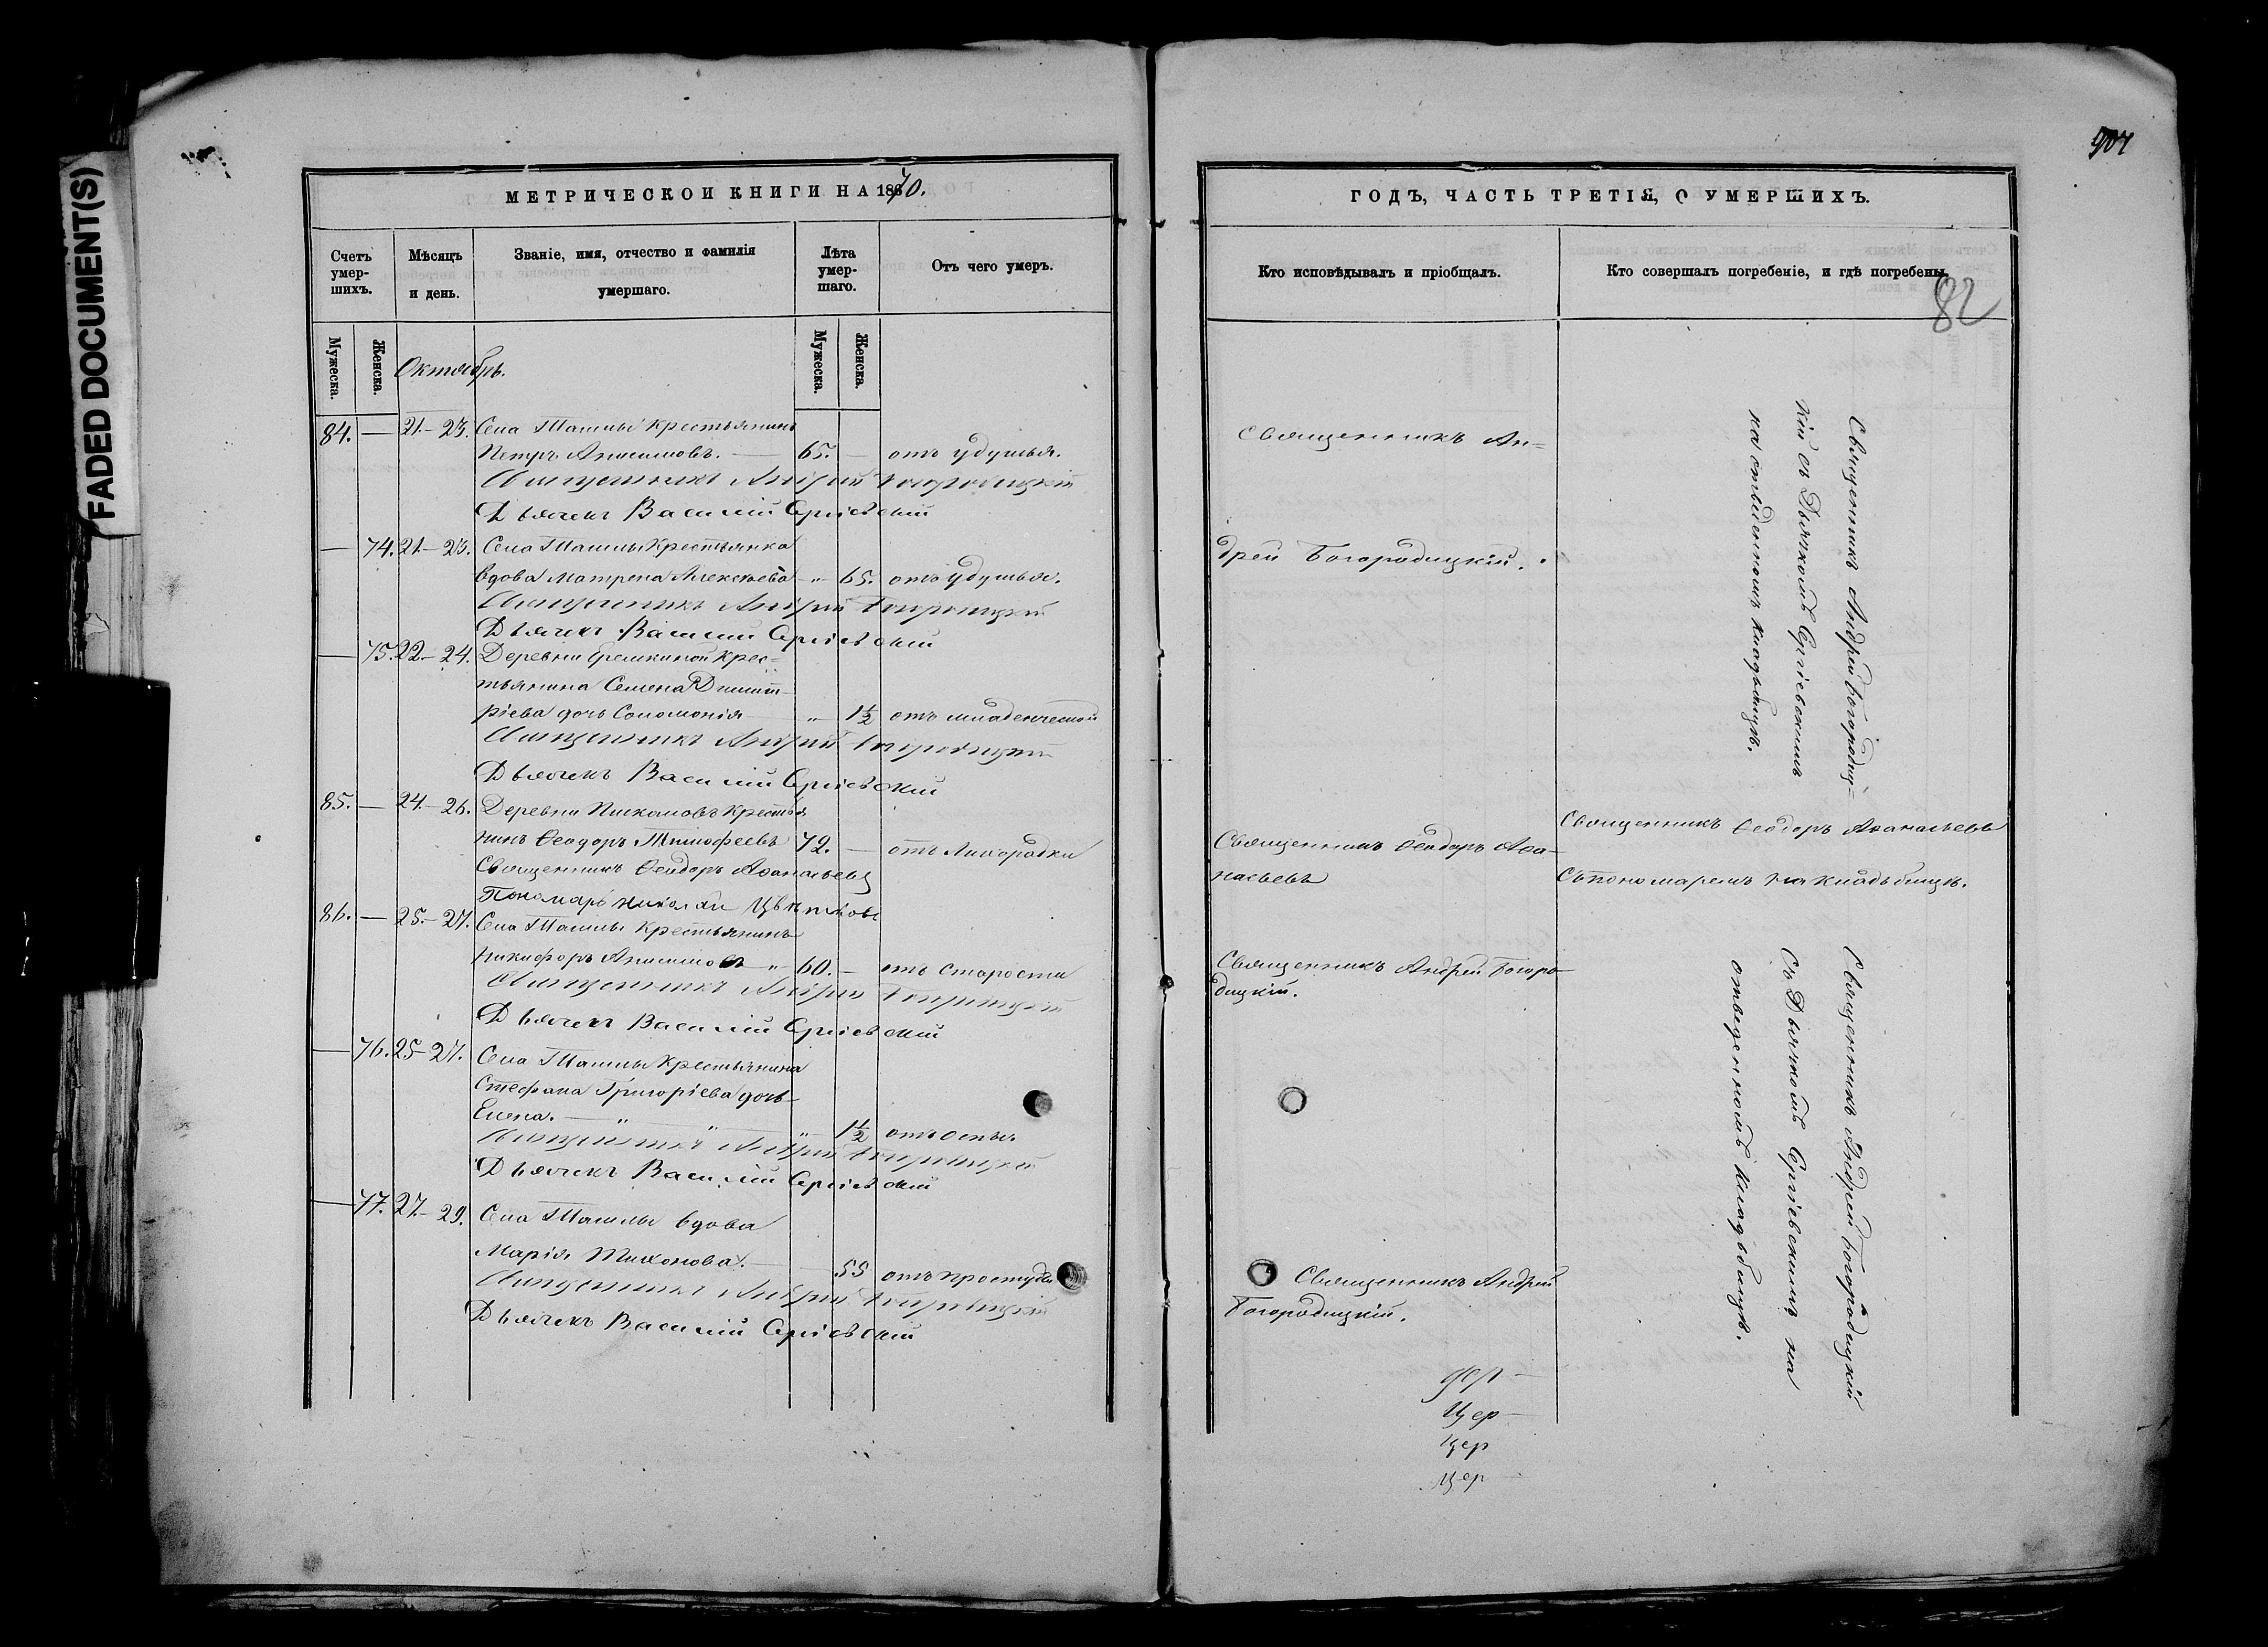 FADED DOCUMENT(S)
МЕТРИЧЕСКОЙ КНИГИ НА 1870.
Счетъ умер-шихъ.
Мѣсяцъ и день.
Званіе, имя, отчество и фамилія умершаго.
Лѣта умер-шаго.
Отъ чего умеръ.
Мужеска.
Женска.
Мужеска.
Женска.
Октябрь.
84. — 21.–23. Села Ташлы Крестьянинъ
Петръ Анисимовъ. — 65. — отъ удушья.
Священникъ Андрей Богородицкій
Дьячекъ Василій Сергіевскій
— 74. 21.–23. Села Ташлы Крестьянка
вдова Матрена Алексѣева — " 65. отъ удушья.
Священникъ Андрей Богородицкій
Дьячекъ Василій Сергіевскій
— 75. 22.–24. Деревни Еремкиной Крес=
тьянина Семена Димит-
ріева дочь Соломонія — " 1½ отъ младенческой
Священникъ Андрей Богородицкій
Дьячекъ Василій Сергіевскій
85. — 24.–26. Деревни Крестья
нинъ Ѳеодоръ Тимофеевъ 72. — отъ Лихорадки
Священникъ Ѳеодоръ Аѳанасьевъ
Пономарь Николай Цвѣтковъ
86. — 25.–27. Села Ташлы Крестьянинъ
Никифоръ Анисимовъ " 60. — отъ старости
Священникъ Андрей Богородицкій
Дьячекъ Василій Сергіевскій
— 76. 25–27. Села Ташлы Крестьянина
Стефана Григоріева дочь
Елена. — " " " 1½ отъ оспы.
Священникъ Андрей Богородицкій
Дьячекъ Василій Сергіевскій
— 77. 27.–29. Села Ташлы вдова
Марія Тихонова. — 55 отъ простуды
Священникъ Андрей Богородицкій
Дьячекъ Василій Сергіевскій
907
ГОДЪ, ЧАСТЬ ТРЕТІЯ, О УМЕРШИХЪ.
Кто исповѣдывалъ и пріобщалъ.
Кто совершалъ погребеніе, и гдѣ погребены.
82
Священникъ Ан=
дрей Богородицкій.
Священникъ Андрей Богородиц=
кій съ Дьячкомъ Сергіевскимъ
на отведенномъ кладбищѣ.
Священникъ Ѳеодоръ Аѳа-
насьевъ
Священникъ Ѳеодоръ Аѳанасьевъ
Съ пономаремъ на кладьбищѣ.
Священникъ Андрей Богоро-
дицкій.
Священникъ Андрей Богородицкій
Съ Дьячкомъ Сергіевскимъ на
отведенномъ кладьбищѣ.
Священникъ Андрей
Богородицкій.
Цер-
цер
Цер-